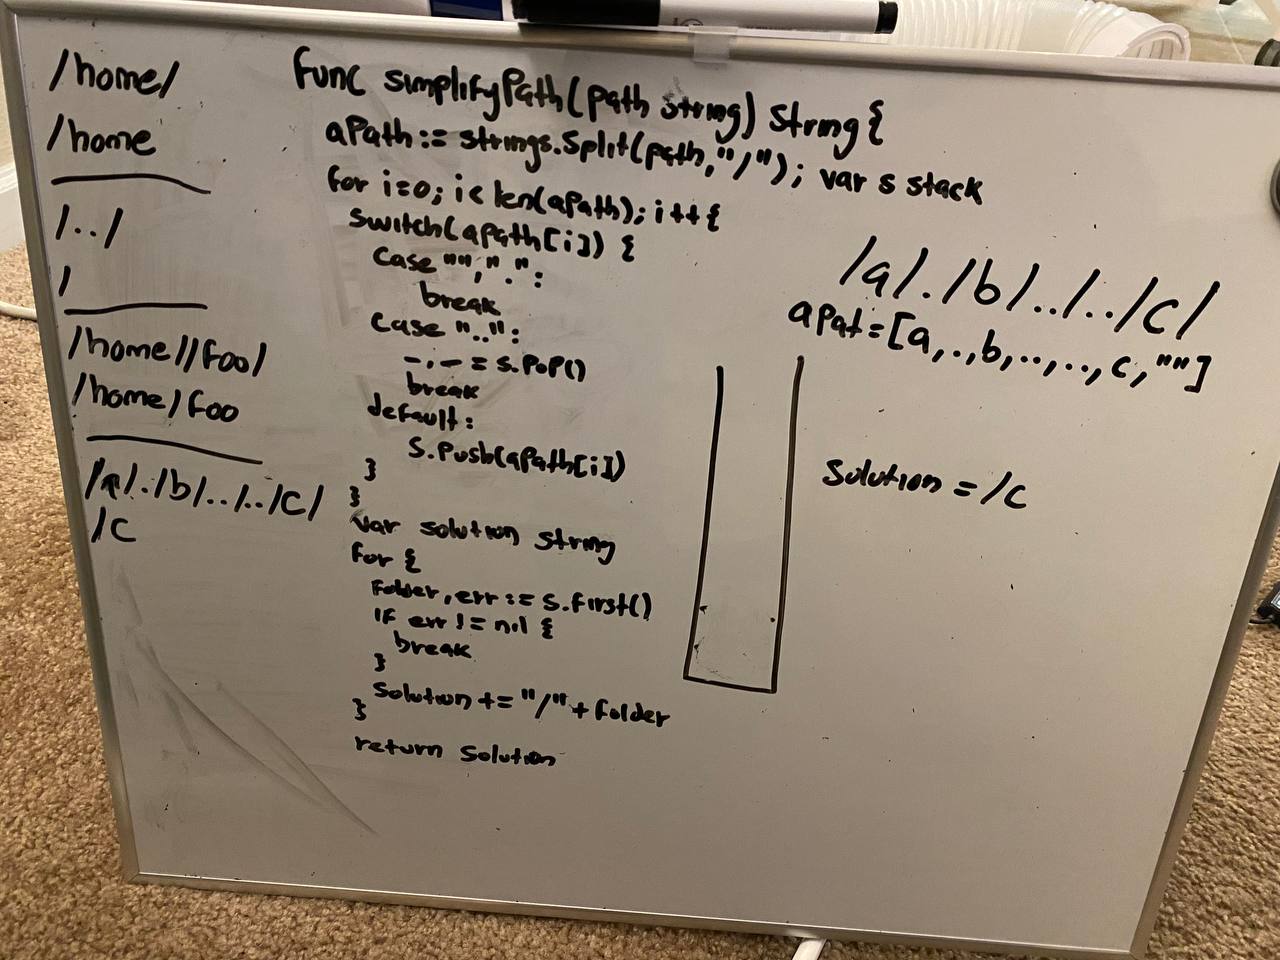 /home/
/home
/../
/
/home//foo/
/home/foo
/a/./b/../../c/
/c
func simplifyPath(path string) string {
aPath := strings.Split(path,"/"); var s stack
for i=0; i< len(aPath); i++ {
switch(aPath[i]) {
case "",".":
break
case "..":
_,_ = s.Pop()
break
default:
s.Push(aPath[i])
}
}
var solution string
for {
folder, err := s.First()
if err != nil {
break
}
solution += "/" + folder
}
return solution
/a/./b/../../c/
aPat=[a,.,b,..,..,c,""]
solution = /c